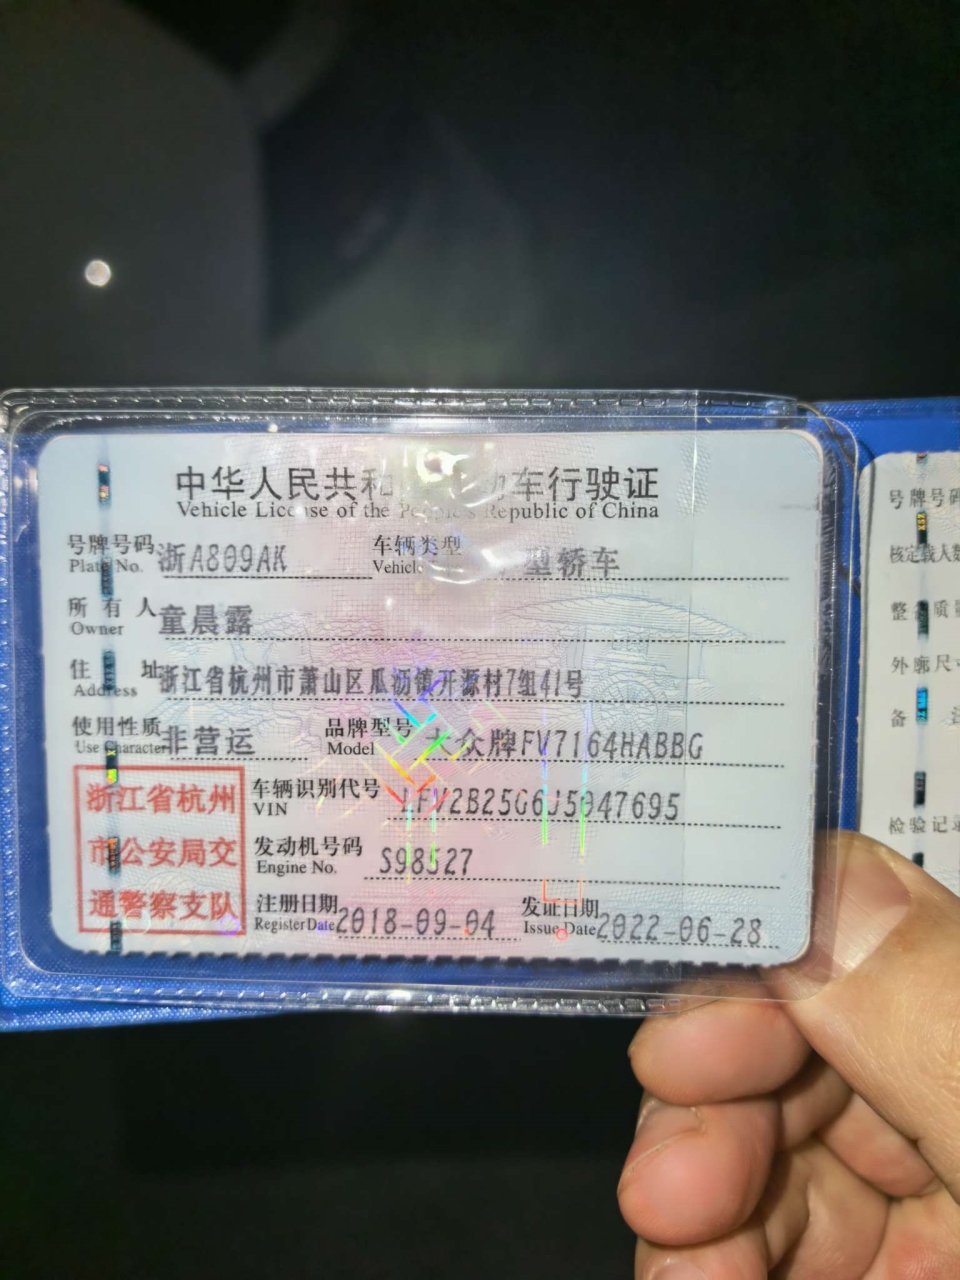 中华人民共和 动车行驶证
Vehicle License of the People's Republic of China
号牌号码 浙A809AK 车辆类型 型桥车
Plate No. Vehicle
所有人 童晨露
Owner
住址 浙江省杭州市萧山区瓜沥镇开源村7组41号
Address
使用性质 非营运 品牌型号 大众牌FV7164HABBG
Use Character Model
浙江省杭州
市公安局交
通警察支队
车辆识别代号 LFV2B25G6J5047695
VIN
发动机号码 S98527
Engine No.
注册日期 2018-09-04 发证日期 2022-06-28
Register Date Issue Date
号牌号码
核定载人数
整 质
外廓尺寸
备 注
检验记录